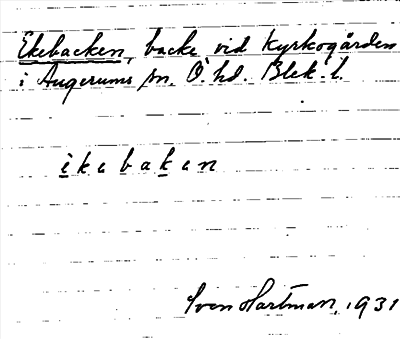 Ekebacken, backe vid Kyrkogården
i Augerums sn. Ö. hd. Blek. l.
ekebaken
Sven Hartman, 1931